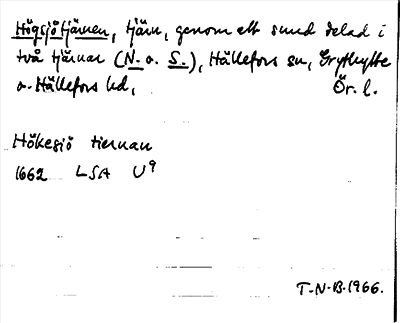 Högsjötjärnen, tjärn, genom ett sund delad i
två tjärnar (N. o. S.), Hällefors sn, Grythytte
o. Hällefors hd, Ör. l.
Hökesiö tiernan
1662 LSA U9
T-N-B-1966.